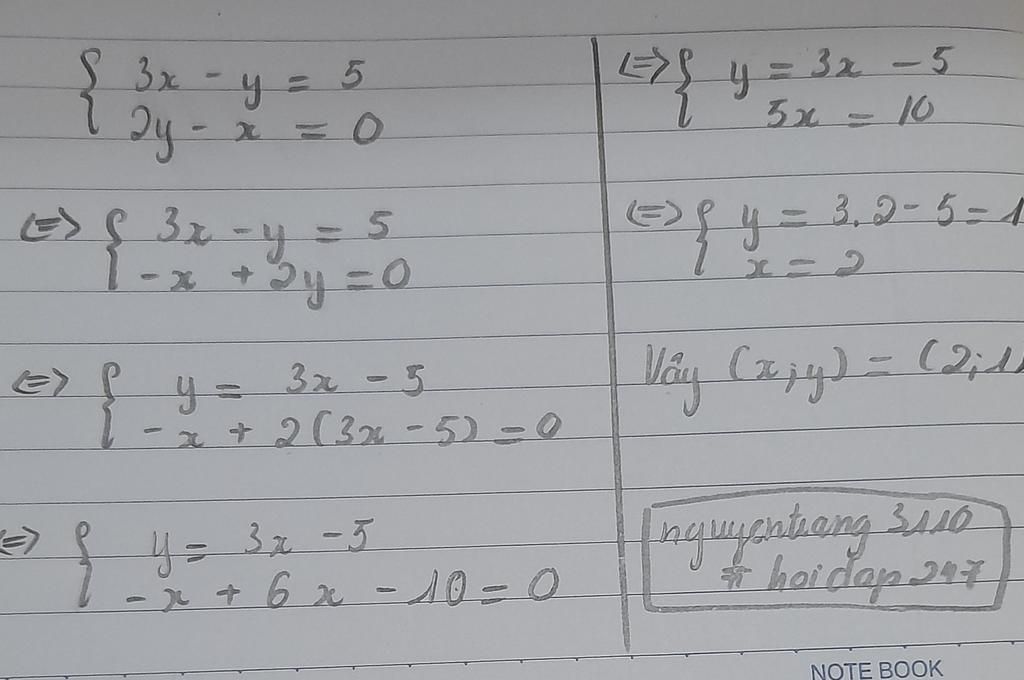 { 3x - y = 5
2y - x = 0
<=> { 3x - y = 5
-x + 2y = 0
<=> { y = 3x - 5
-x + 2(3x - 5) = 0
<=> { y = 3x - 5
-x + 6x - 10 = 0
<=> { y = 3x - 5
5x = 10
<=> { y = 3.2 - 5 = 1
x = 2
Vậy (x;y) = (2;1)
nguyentrang 3110
# hoidap 247
NOTE BOOK